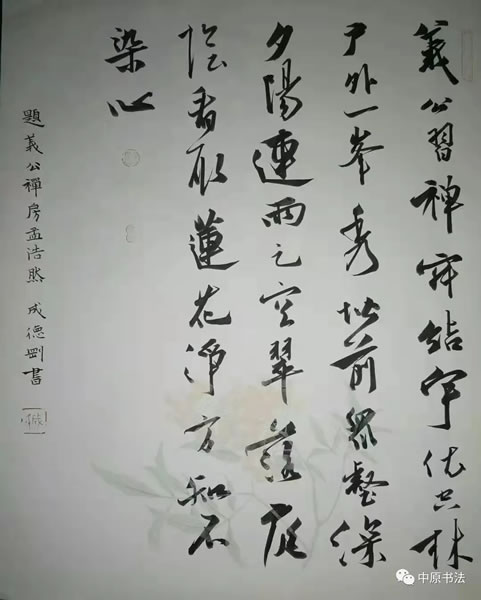 義公習禪寂結宇依空林
戶外一峯秀階前眾壑深
夕陽連雨足空翠落庭
陰看取蓮花淨方知不
染心
題義公禪房孟浩然 成德剛書
中原书法